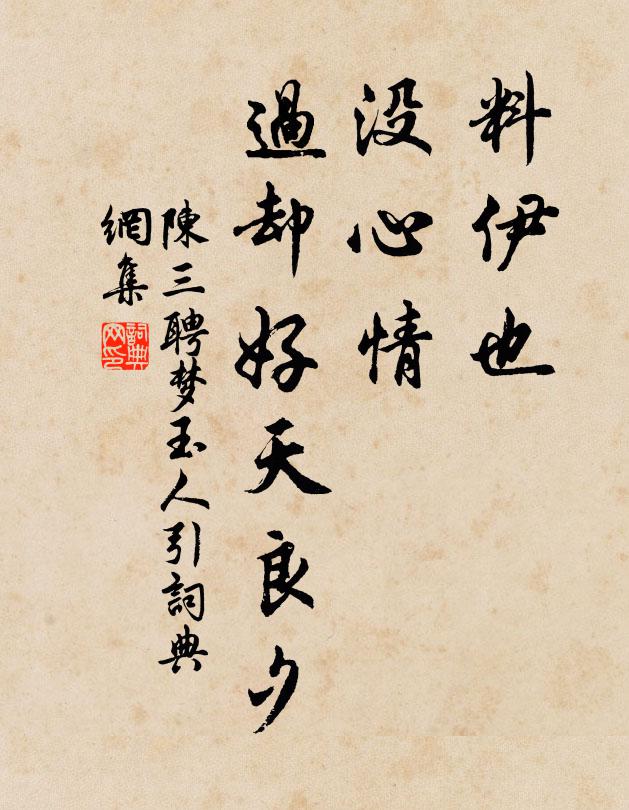 料伊也
没心情
過却好天良夕
陳三聘梦玉人引詞典
網集
詞典
网印